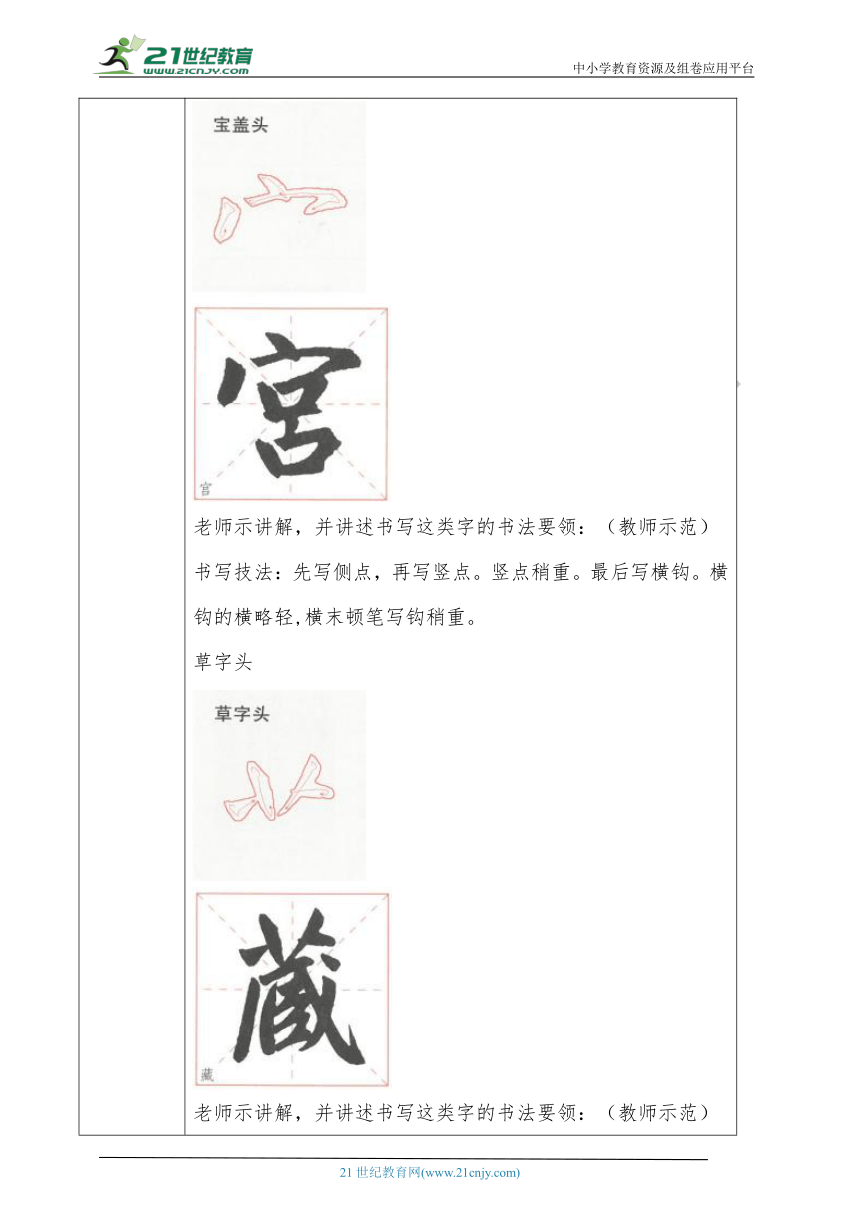 21世纪教育
www.21cnjy.com
中小学教育资源及组卷应用平台
宝盖头
宫
宫
老师示讲解，并讲述书写这类字的书法要领：（教师示范）
书写技法：先写侧点，再写竖点。竖点稍重。最后写横钩。横
钩的横略轻,横末顿笔写钩稍重。
草字头
草字头
藏
藏
老师示讲解，并讲述书写这类字的书法要领：（教师示范）
21世纪教育网(www.21cnjy.com)